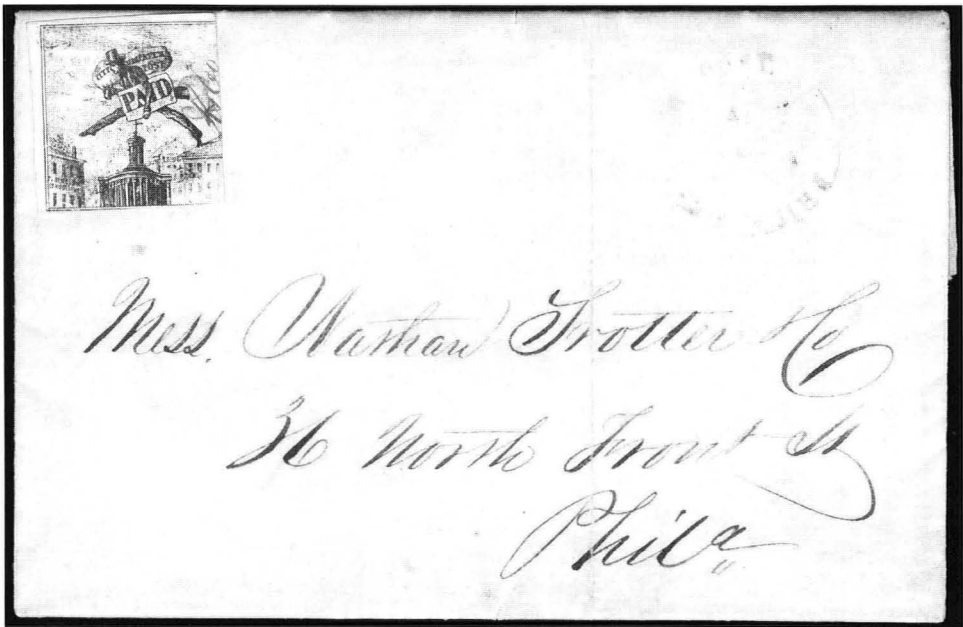 PAID
Mess. Nathan Trotter & Co
36 North Front St
Phila